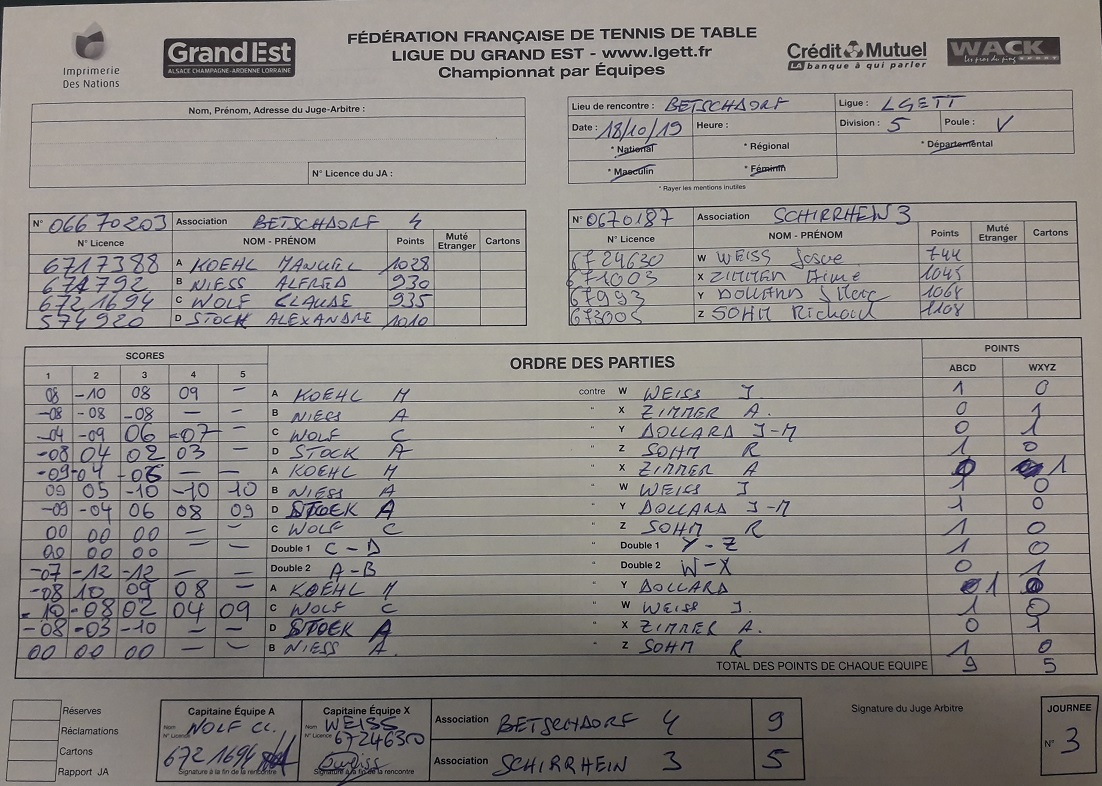 Imprimerie
Des Nations
GrandEst
ALSACE CHAMPAGNE-ARDENNE LORRAINE
FÉDÉRATION FRANÇAISE DE TENNIS DE TABLE
LIGUE DU GRAND EST - www.lgett.fr
Championnat par Équipes
Crédit Mutuel
LA banque à qui parler
WACK
Nom, Prénom, Adresse du Juge-Arbitre :
N° Licence du JA :
Lieu de rencontre : BETSCHDORF Ligue : LGETT
Date : 18/10/19 Heure : Division : 5 Poule : V
* National * Régional * Départemental
* Masculin * Féminin
* Rayer les mentions inutiles
N° 06670203 Association BETSCHDORF 4
N° Licence NOM - PRÉNOM Points Muté Etranger Cartons
6717388 A KOEHL MANUEL 1028
671792 B NIESS ALFRED 930
6721694 C WOLF CLAUDE 935
574920 D STOCK ALEXANDRE 1010
N° 0670187 Association SCHIRRHEIN 3
N° Licence NOM - PRÉNOM Points Muté Etranger Cartons
6724630 W WEISS Josue 744
671003 X ZIMMER Aimé 1045
67993 Y DOLLARD 1068
673005 Z SOHM Richard 1108
SCORES ORDRE DES PARTIES POINTS
1 2 3 4 5 ABCD WXYZ
08 -10 08 09 - A KOEHL M contre W WEISS J 1 0
-08 -08 -08 - - B NIESS A " X ZIMMER A. 0 1
-04 -09 06 -07 - C WOLF C " Y DOLLARD J-M 0 1
-08 04 02 03 - D STOCK A " Z SOHM R 1 0
-09 -04 -06 - - A KOEHL M " X ZIMMER A 0 1
09 05 -10 -10 10 B NIESS A " W WEISS J 1 0
-09 -04 06 08 09 D STOEK A " Y DOLLARD J-M 1 0
00 00 00 - - C WOLF C " Z SOHM R 1 0
00 00 00 - - Double 1 C-D " Double 1 Y-Z 1 0
-07 -12 -12 - - Double 2 A-B " Double 2 W-X 0 1
-08 10 09 08 - A KOEHL M " Y DOLLARD 1 0
-10 -08 02 04 09 C WOLF C " W WEISS J. 1 0
-08 -03 -10 - - D STOEK A " X ZIMMER A. 0 1
00 00 00 - - B NIESS A. " Z SOHM R 1 0
TOTAL DES POINTS DE CHAQUE EQUIPE 9 5
Réserves
Réclamations
Cartons
Rapport JA
Capitaine Équipe A
Nom WOLF CL.
N° Licence 6721694
Signature à la fin de la rencontre
Capitaine Équipe X
Nom WEISS
N° Licence 6724630
Signature à la fin de la rencontre
Association BETSCHDORF 4 9
Association SCHIRRHEIN 3 5
Signature du Juge Arbitre
JOURNEE
N° 3